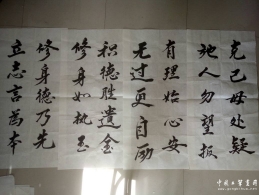 克己毋处疑
施人勿望报
有理始心安
无过更自励
积德胜遗金
修身如执玉
修身德乃先
立志言为本